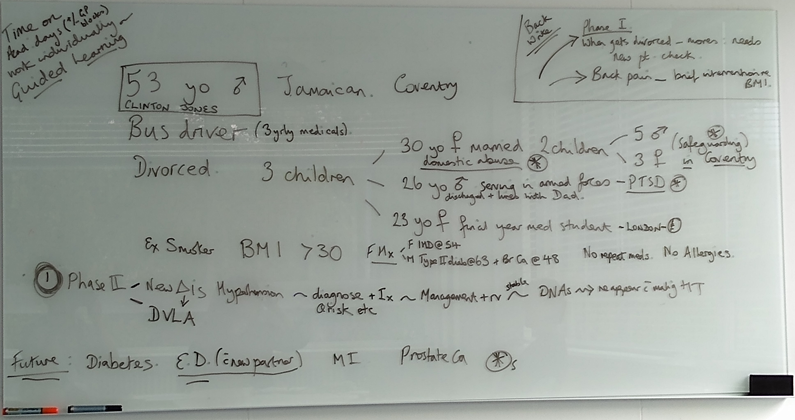 Time on
Acad days (% GP
work individually -
Guided Learning
53 yo ♂
CLINTON JONES
Jamaican. Coventry
Back
Write
Phase I
When gets divorced - moves - needs
new pt. check.
Back pain - brief intervention re
BMI.
Bus driver (3 yrly medicals).
Divorced. 3 children
30 yo f married 2 children
domestic abuse *
5 ♂
3 f
(Safeguarding) *
in Coventry
26 yo ♂ serving in armed forces - PTSD *
discharged + lives with Dad.
23 yo f final year med student - LONDON - £
Ex Smoker BMI >30 FHx
F IHD @ 54
M Type II diab @ 63 + Br Ca @ 48
No repeat meds. No Allergies.
1 Phase II - New Δis Hypertension ~ diagnose + Ix ~ Management + rv ~ DNAs ~> reappear c̄ malig HT
stable
QRisk etc
DVLA
Future: Diabetes. E.D. (c̄ new partner) MI Prostate Ca *s